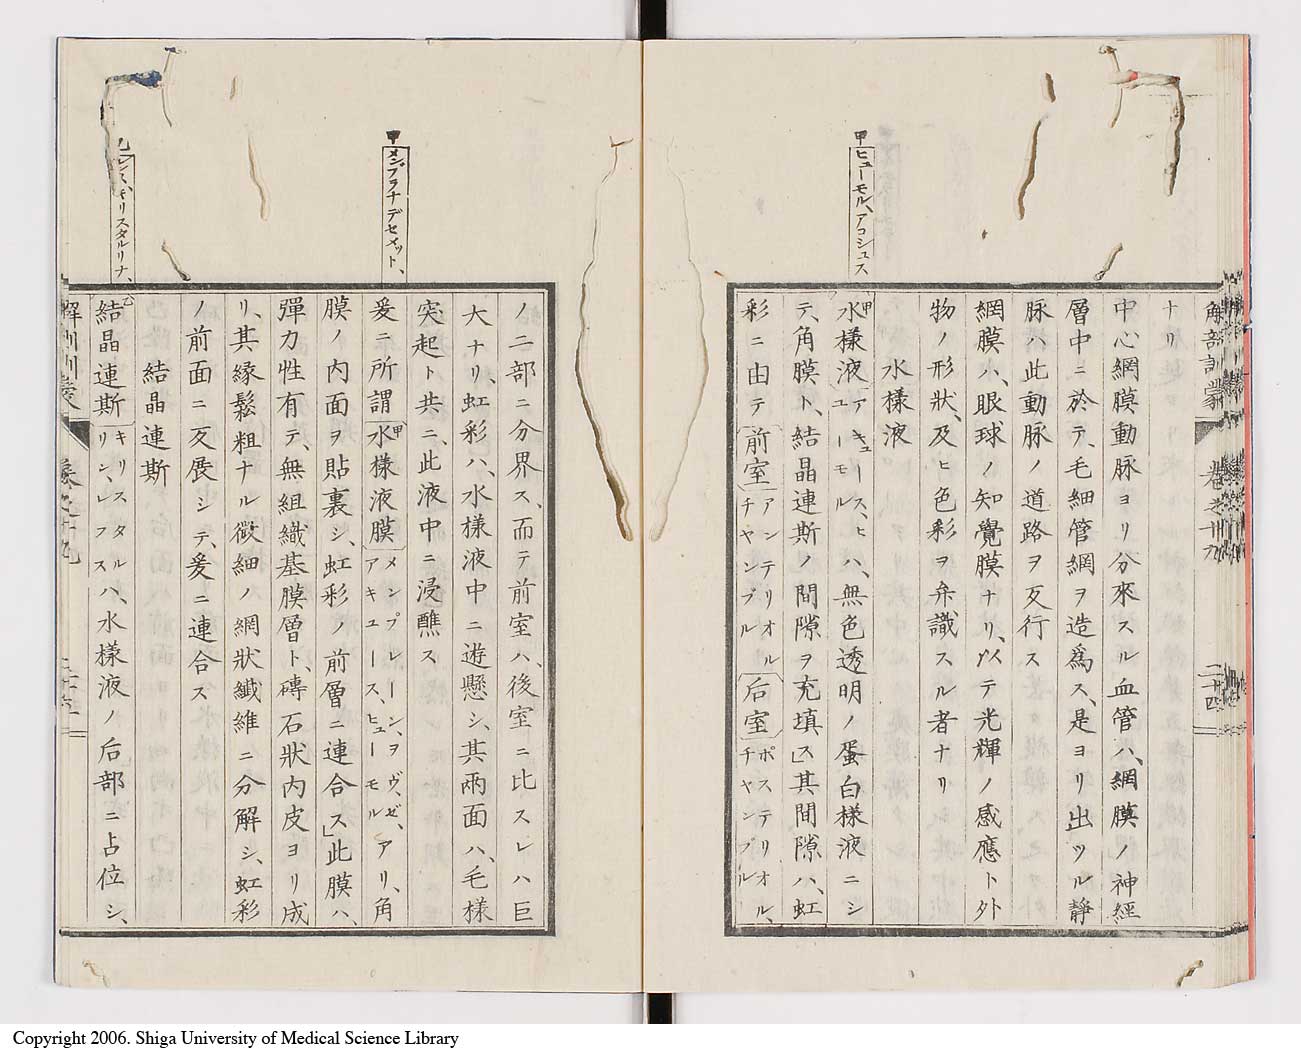 甲ヒューモル、アコシュス
ナリ
中心網膜動脉ヨリ分來スル血管ハ、網膜ノ神經
層中ニ於テ、毛細管網ヲ造爲ス、是ヨリ出ツル靜
脉ハ此動脉ノ道路ヲ反行ス
網膜ハ、眼球ノ知覺膜ナリ、以テ光輝ノ感應ト外
物ノ形狀、及ヒ色彩ヲ弁識スル者ナリ
水樣液
甲水樣液アキュースヒューモルハ、無色透明ノ蛋白樣液ニシ
テ、角膜ト、結晶連斯ノ間隙ヲ充填ス」其間隙ハ、虹
彩ニ由テ前室アンテリオルチヤンブル后室ポステリオル、チヤンブル
解剖訓蒙
卷之十九
二十四
甲メンブラナデセメット、
乙レンス、キリスタルリナ、
ノ二部ニ分界ス、而テ前室ハ、後室ニ比スレハ巨
大ナリ、虹彩ハ、水樣液中ニ遊懸シ、其兩面ハ、毛樣
突起ト共ニ、此液中ニ浸醮ス
爰ニ所謂甲水樣液膜メンブレーン、ヲヴ、ゼ、アキユース、ヒューモルアリ、角
膜ノ内面ヲ貼裏シ、虹彩ノ前層ニ連合ス」此膜ハ、
彈力性有テ、無組織基膜層ト、磚石狀内皮ヨリ成
リ、其緣鬆粗ナル微細ノ網狀纎維ニ分解シ、虹彩
ノ前面ニ反展シテ、爰ニ連合ス
結晶連斯
乙結晶連斯キリスタルリン、レンスハ、水樣液ノ后部ニ占位シ、